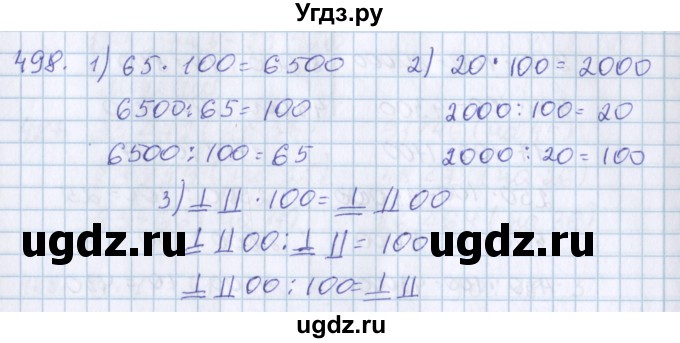 Угдз.ру
498. 1) 65 · 100 = 6500 2) 20 · 100 = 2000
6500 : 65 = 100 2000 : 100 = 20
6500 : 100 = 65 2000 : 20 = 100
3) ⊥ ∐ · 100 = ⊥ ∐ 00
⊥ ∐ 00 : ⊥ ∐ = 100
⊥ ∐ 00 : 100 = ⊥ ∐
ugdz.ru ugdz.ru
ugdz.ru